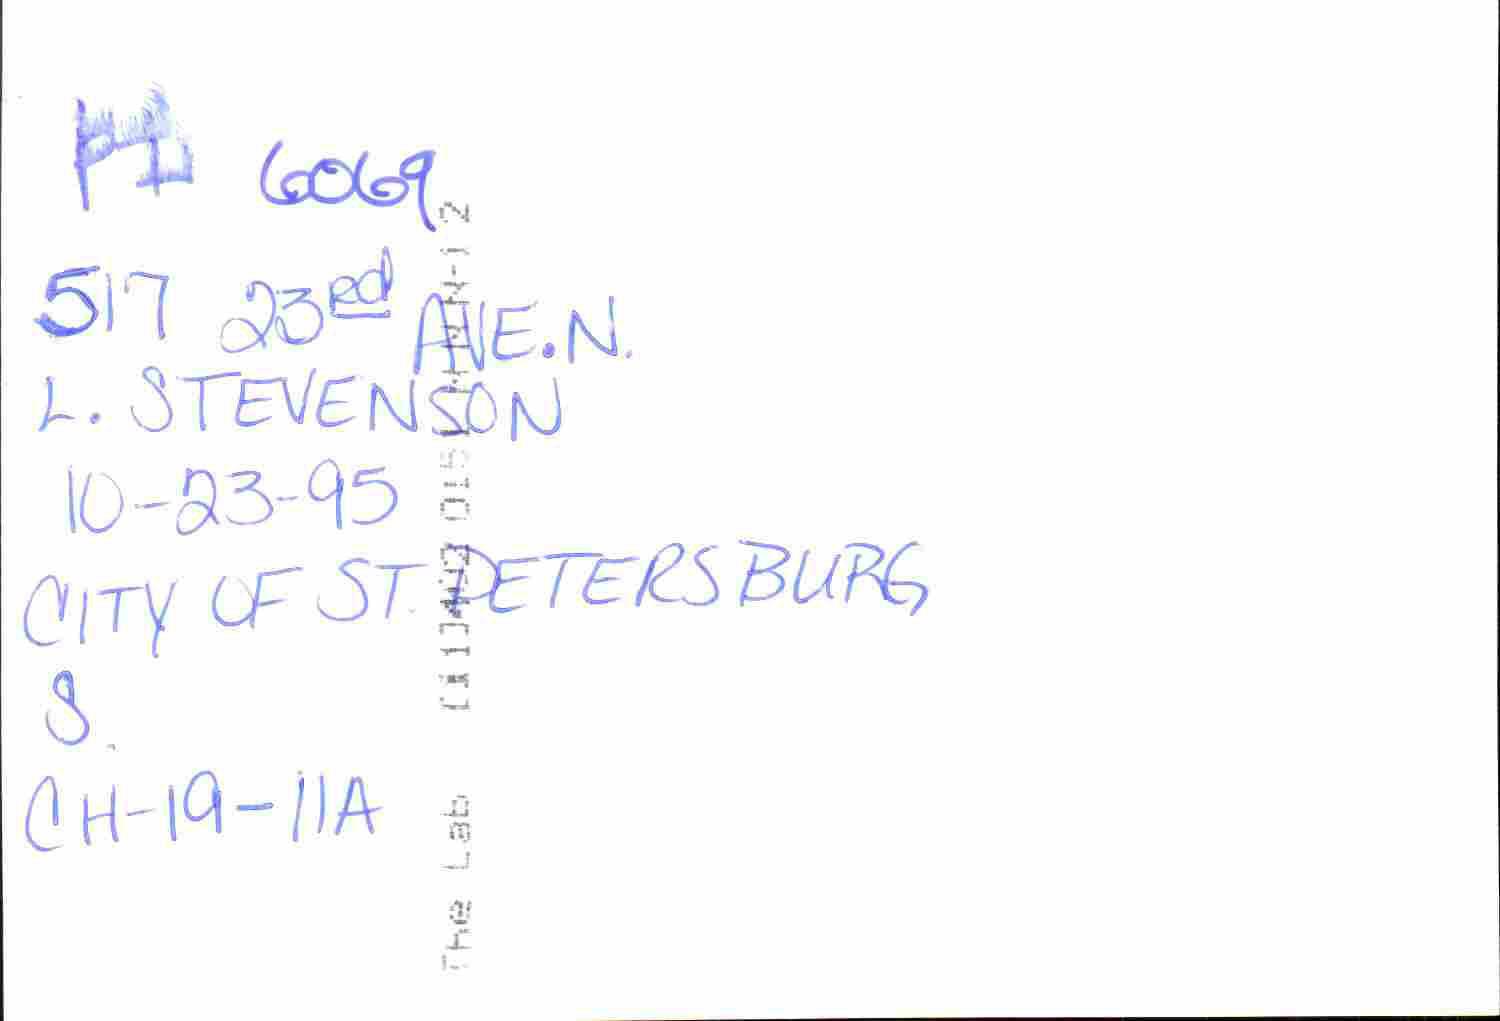 6069
517 23rd AVE. N.
L. STEVENSON
10-23-95
CITY OF ST. PETERSBURG
8.
CH-19-11A
The Lab